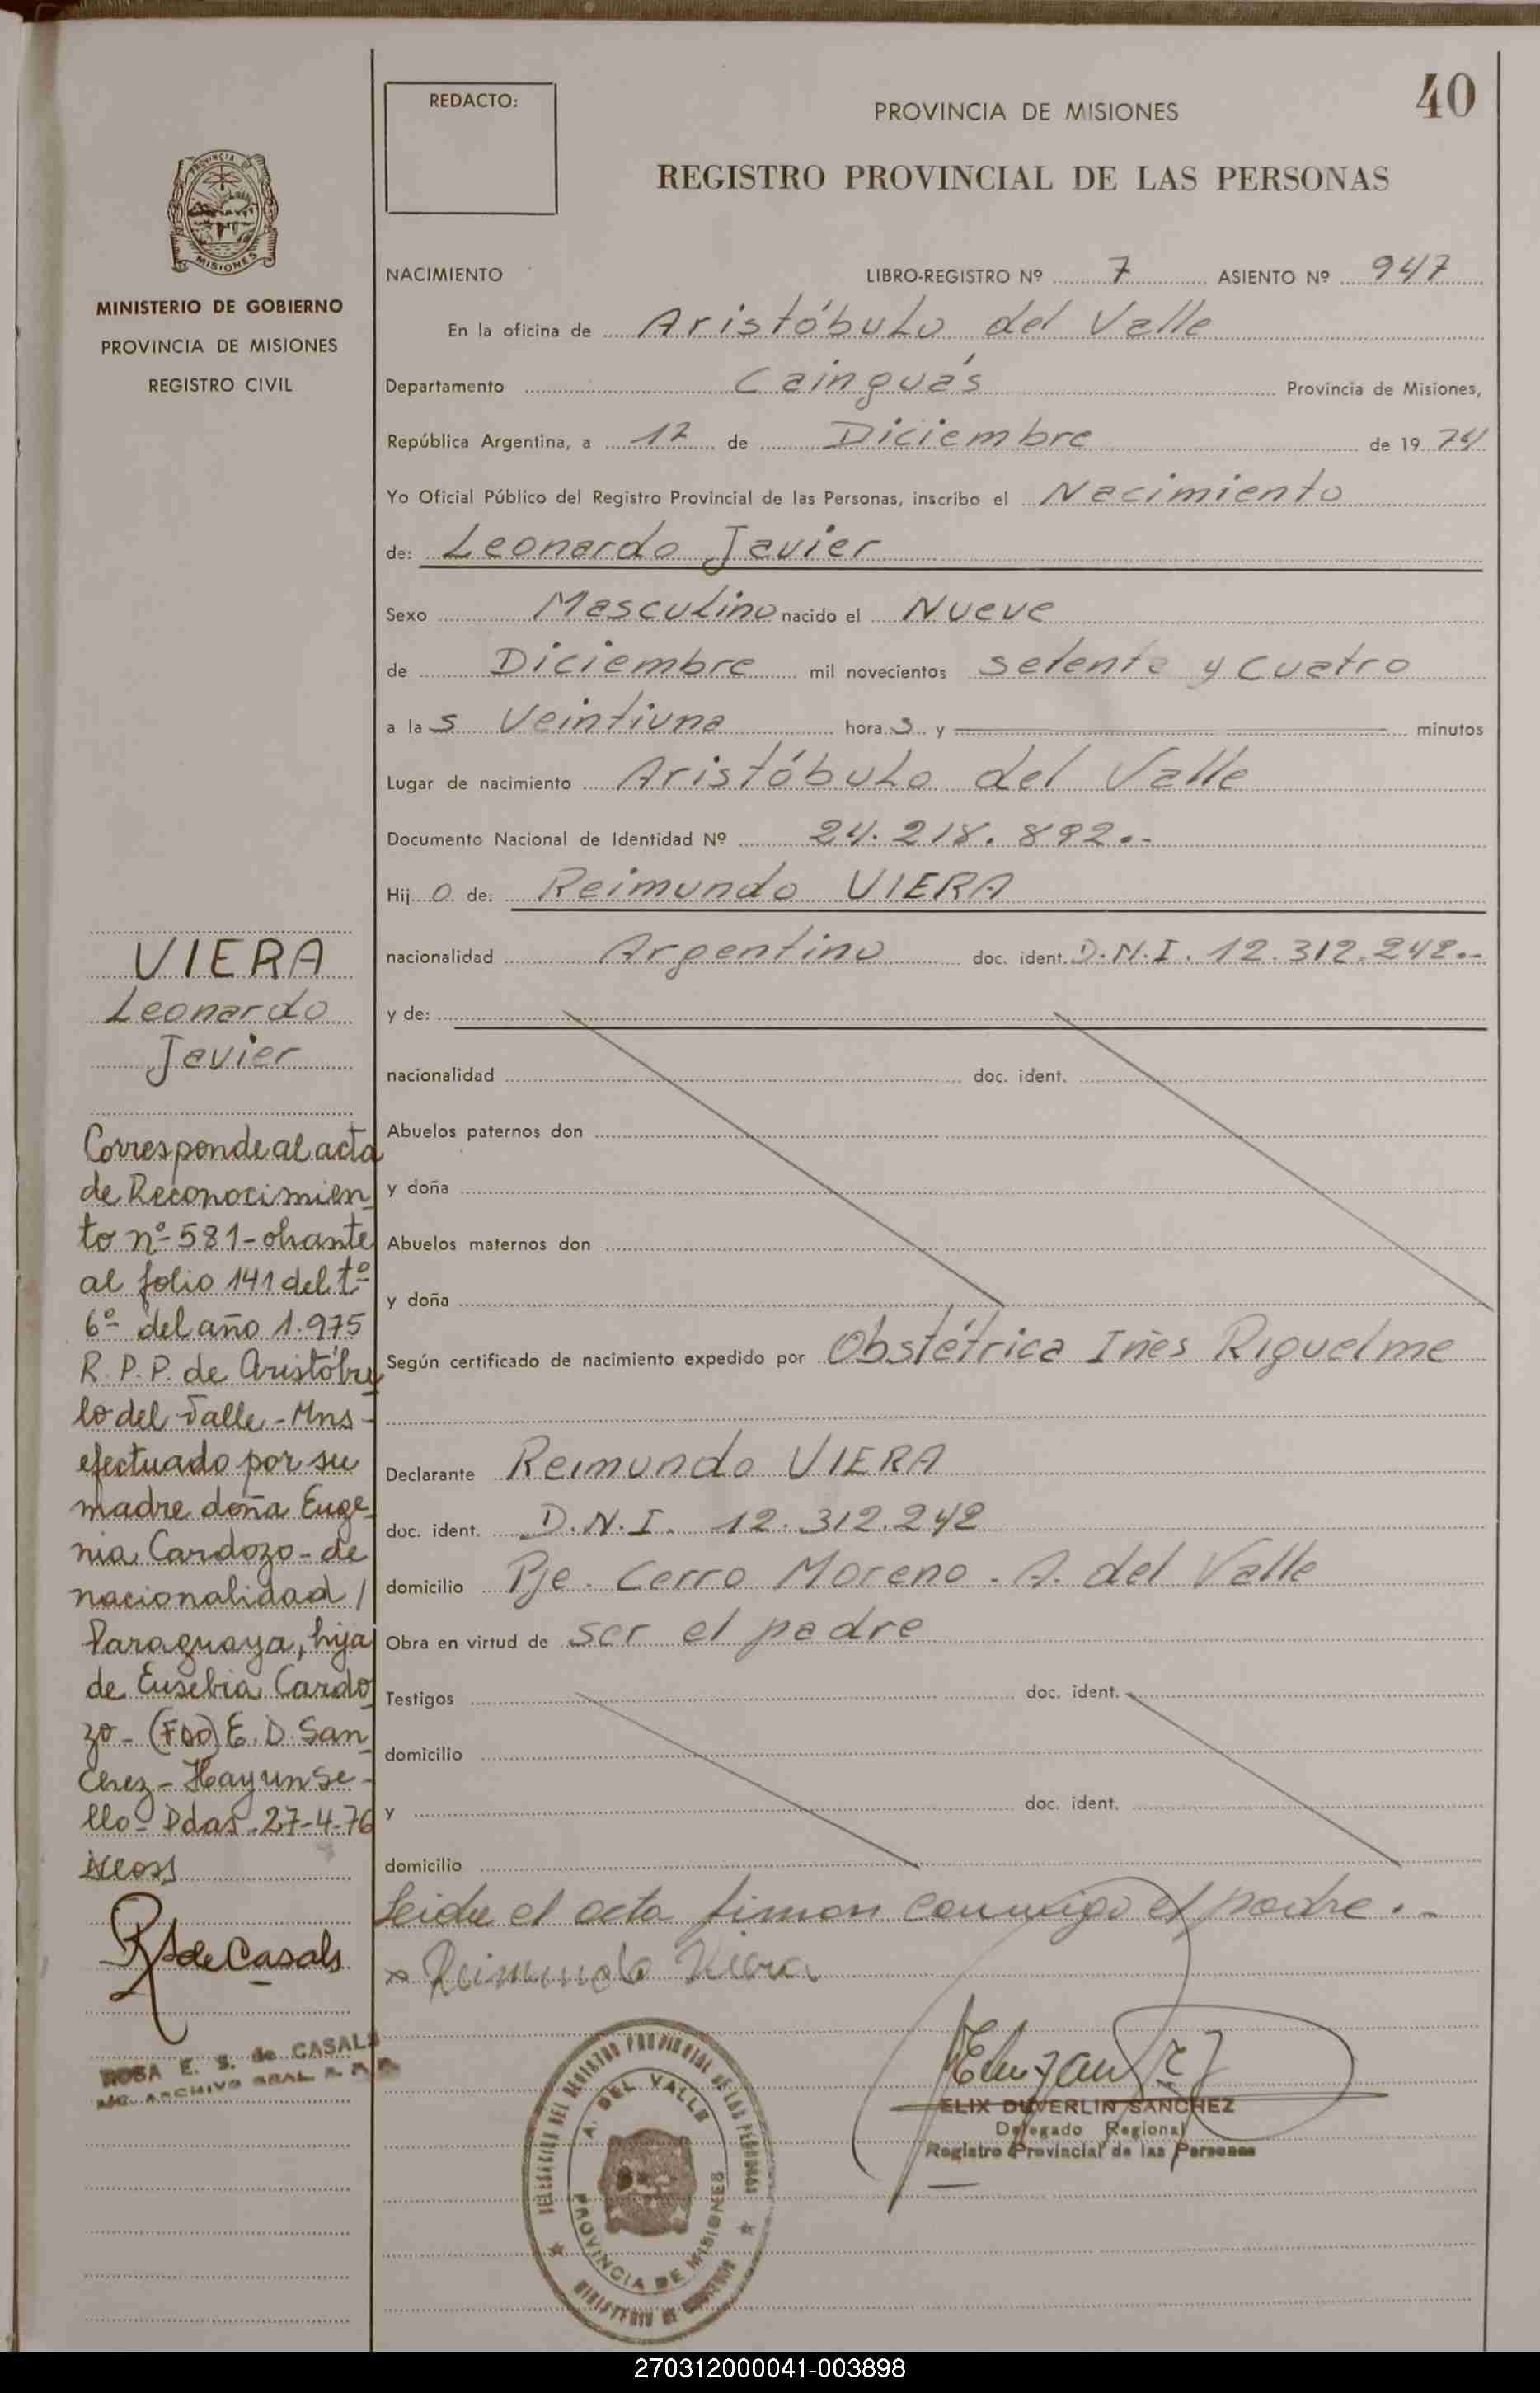 40
REDACTO:
PROVINCIA DE MISIONES
REGISTRO PROVINCIAL DE LAS PERSONAS
PROVINCIA DE
MISIONES
MINISTERIO DE GOBIERNO
PROVINCIA DE MISIONES
REGISTRO CIVIL
NACIMIENTO LIBRO-REGISTRO Nº 7 ASIENTO Nº 947
En la oficina de Aristóbulo del Valle
Departamento Cainguás Provincia de Misiones,
República Argentina, a 12 de Diciembre de 19 74
Yo Oficial Público del Registro Provincial de las Personas, inscribo el Nacimiento
de: Leonardo Javier
Sexo Masculino nacido el Nueve
de Diciembre mil novecientos setenta y cuatro
a la s Veintiuna hora s y minutos
Lugar de nacimiento Aristóbulo del Valle
Documento Nacional de Identidad Nº 24.218.892.-
Hij o de: Reimundo VIERA
nacionalidad Argentino doc. ident. D.N.I. 12.312.242.-
y de:
nacionalidad doc. ident.
Abuelos paternos don
y doña
Abuelos maternos don
y doña
Según certificado de nacimiento expedido por Obstétrica Iñes Riquelme
Declarante Reimundo VIERA
doc. ident. D.N.I. 12.312.242
domicilio Pje. Cerro Moreno - A. del Valle
Obra en virtud de ser el padre
Testigos doc. ident.
domicilio
y doc. ident.
domicilio
Leida el acta firman conmigo el padre .-
x Reimundo Viera
VIERA
Leonardo
Javier
Corresponde al acta
de Reconocimien
to nº 581-obrante
al folio 141 del tº
6º del año 1.975
R. P. P. de Aristóbu
lo del Valle - Mns -
efectuado por su
madre doña Euge
nia Cardozo - de
nacionalidad /
Paraguaya, hija
de Eusebia Cardo
zo - (Fdo) E. D. San
chez - Hay un se-
llo - Pdas. 27-4-76
R de Casals
ROSA E. S. de CASALS
ARCHIVO GRAL. R. P. P.
DELEGACION DEL REGISTRO PROVINCIAL DE LAS PERSONAS
A. DEL VALLE
PROVINCIA DE MISIONES
MINISTERIO DE GOBIERNO
ELIX DUVERLIN SANCHEZ
Delegado Regional
Registro Provincial de las Personas
270312000041-003898